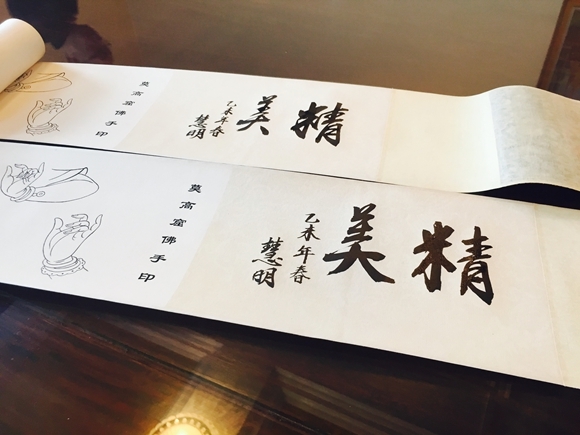 精美
乙未年春
慧明
莫高窟佛手印
精美
乙未年春
慧明
莫高窟佛手印